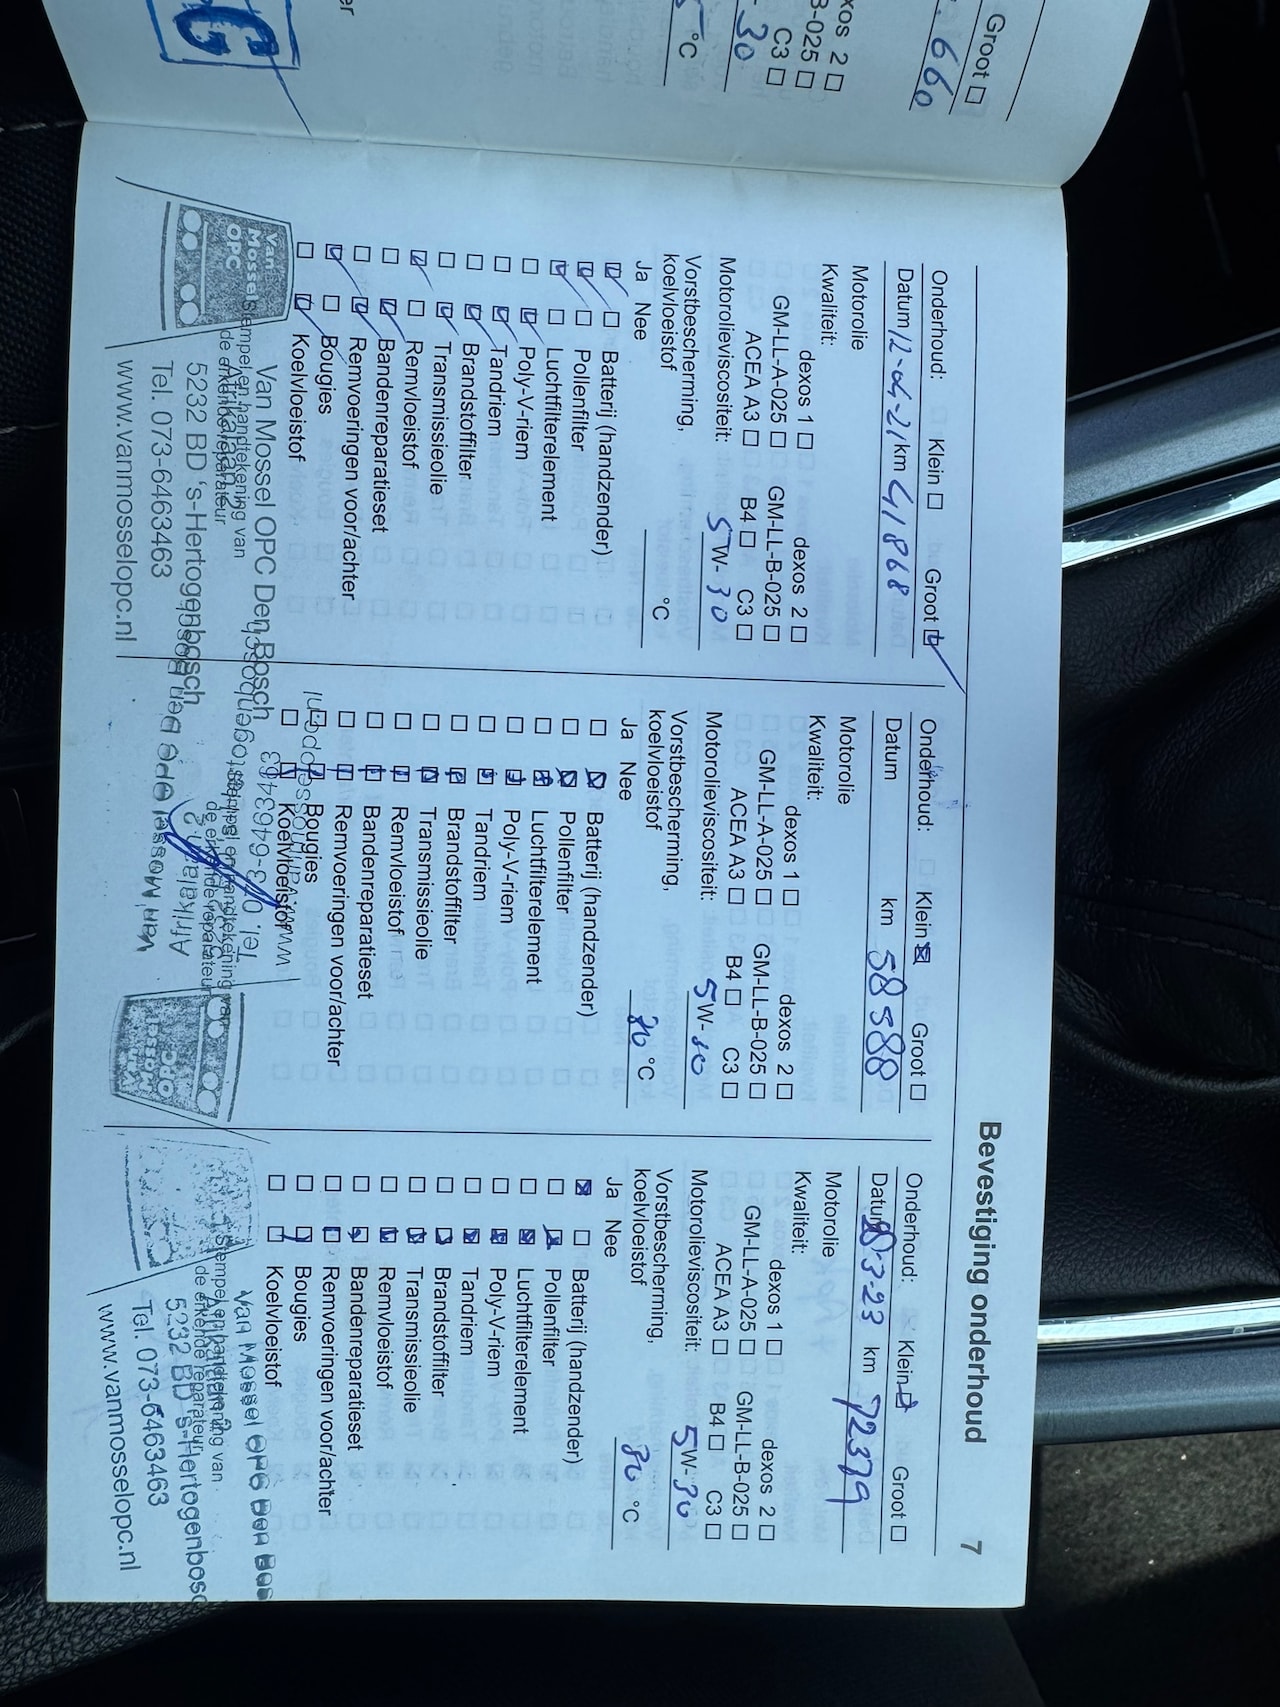 Groot
660
xos 2
B-025
C3
30
°C
er
G
Bevestiging onderhoud
7
Onderhoud: Klein Groot
Datum 12-04-21 km 41868
Motorolie
Kwaliteit:
dexos 1 dexos 2
GM-LL-A-025 GM-LL-B-025
ACEA A3 B4 C3
Motorolieviscositeit: 5W-30
Vorstbescherming,
koelvloeistof °C
Ja Nee
Batterij (handzender)
Pollenfilter
Luchtfilterelement
Poly-V-riem
Tandriem
Brandstoffilter
Transmissieolie
Remvloeistof
Bandenreparatieset
Remvoeringen voor/achter
Bougies
Koelvloeistof
Stempel en handtekening van
de erkende reparateur
Van Mossel OPC
Van Mossel OPC Den Bosch
5232 BD 's-Hertogenbosch
Tel. 073-6463463
www.vanmosselopc.nl
Onderhoud: Klein Groot
Datum km 58588
Motorolie
Kwaliteit:
dexos 1 dexos 2
GM-LL-A-025 GM-LL-B-025
ACEA A3 B4 C3
Motorolieviscositeit: 5W-30
Vorstbescherming,
koelvloeistof °C
Ja Nee
Batterij (handzender)
Pollenfilter
Luchtfilterelement
Poly-V-riem
Tandriem
Brandstoffilter
Transmissieolie
Remvloeistof
Bandenreparatieset
Remvoeringen voor/achter
Bougies
Koelvloeistof
Stempel en handtekening van
de erkende reparateur
Van Mossel OPC
Van Mossel OPC Den Bosch
Tel. 073-6463463
Onderhoud: Klein Groot
Datum 28-3-23 km 72379
Motorolie
Kwaliteit:
dexos 1 dexos 2
GM-LL-A-025 GM-LL-B-025
ACEA A3 B4 C3
Motorolieviscositeit: 5W-30
Vorstbescherming,
koelvloeistof °C
Ja Nee
Batterij (handzender)
Pollenfilter
Luchtfilterelement
Poly-V-riem
Tandriem
Brandstoffilter
Transmissieolie
Remvloeistof
Bandenreparatieset
Remvoeringen voor/achter
Bougies
Koelvloeistof
Stempel en handtekening van
de erkende reparateur
Van Mossel OPC Den Bos
5232 BD 's-Hertogenbosc
Tel. 073-6463463
www.vanmosselopc.nl